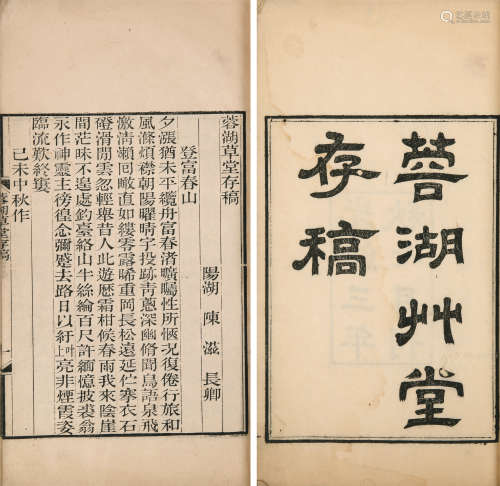 蓉湖艸堂
存稿
蓉湖草堂存稿
陽湖 陳滋 長卿
登富春山
夕漲猶未平纜舟富春渚曠矚性所愜況復倦行旅和
風滌煩襟朝陽曜晴宇投跡靑蔥深幽脩聞鳥語泉飛
激淸瀨回瞰直如縷零露晞重岡長松遠延伫搴衣石
磴滑閒雲忽輕舉昔人此遊歷霜柑候春雨我來陰崖
間茫昧不遑處釣臺絡山牛絲綸百尺許緬憶披裘翁
永作神靈主徬徨念彌蹔去路日以紆上叶亮非煙霞姿
臨流歎終窶
己未中秋作
蓉湖草堂存稿
一